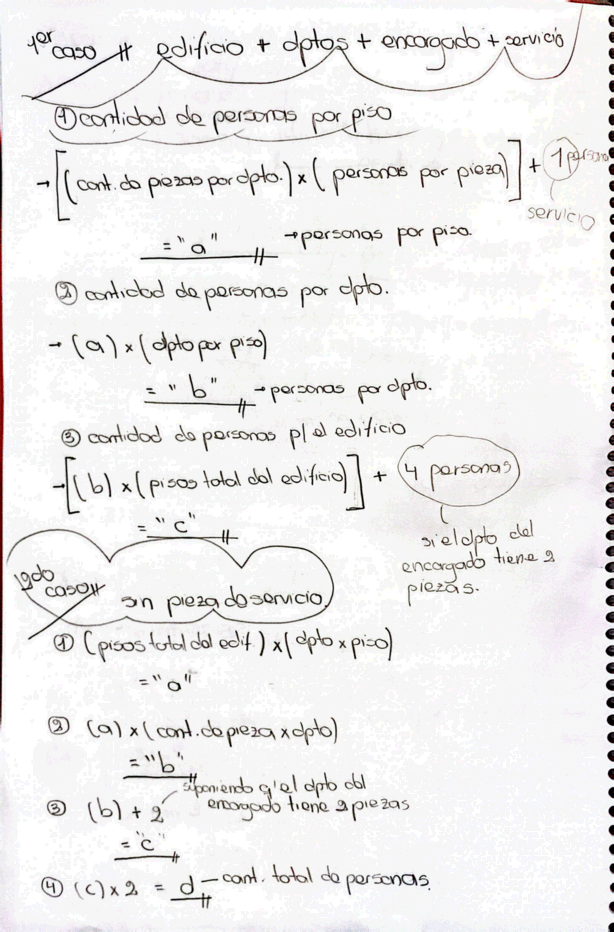 1er caso // edificio + dptos + encargado + servicio
① cantidad de personas por piso
→ [(cant. de piezas por dpto.) x ( personas por pieza)] + 1 persona
servicio
= "a" → personas por piso.
② cantidad de personas por dpto.
→ (a) x (dpto por piso)
= "b" → personas por dpto.
③ cantidad de personas p/ el edificio
→ [(b) x (pisos total del edificio)] + 4 personas
= "c"
si el dpto del
encargado tiene 2
piezas.
2do caso // sin pieza de servicio.
① (pisos total del edif.) x (dpto x piso)
= "a"
② (a) x (cant. de pieza x dpto)
= "b"
suponiendo q' el dpto del
③ (b) + 2 encargado tiene 2 piezas
= "c"
④ (c) x 2 = d — cant. total de personas.